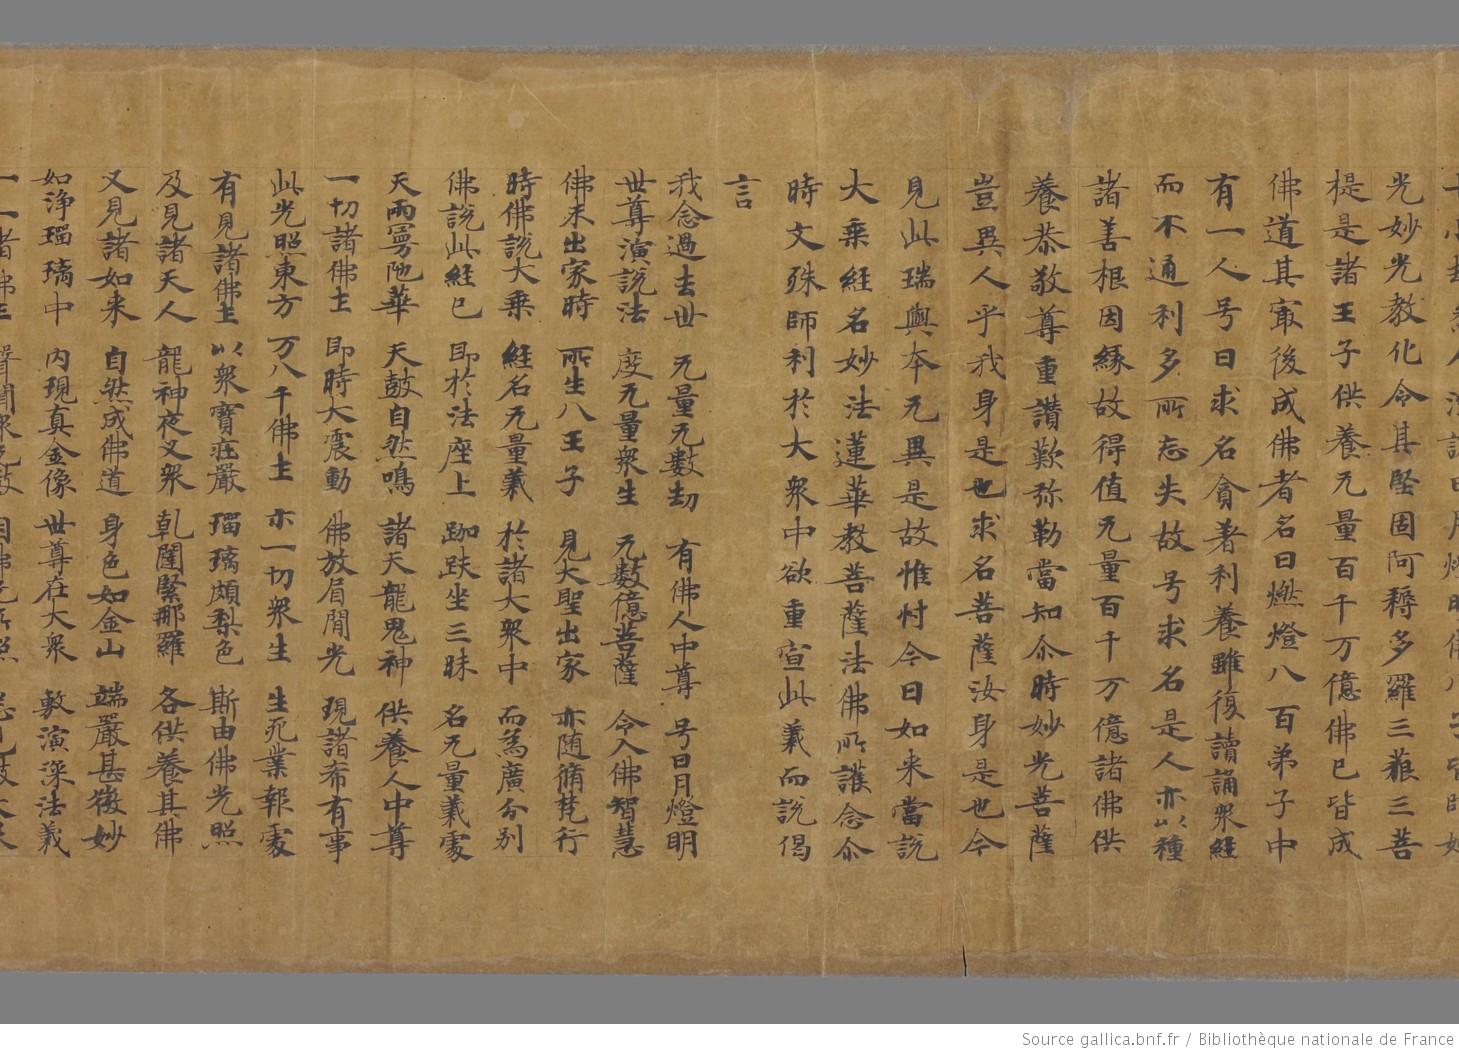 光妙光教化令其堅固阿耨多羅三藐三菩
提是諸王子供養无量百千万億佛已皆成
佛道其㝡後成佛者名曰燃燈八百弟子中
有一人号曰求名貪著利養雖復讀誦衆經
而不通利多所忘失故号求名是人亦以種
諸善根因緣故得值无量百千万億諸佛供
養恭敬尊重讚歎弥勒當知尒時妙光菩薩
豈異人乎我身是也求名菩薩汝身是也今
見此瑞與本无異是故惟忖今日如来當說
大乘經名妙法蓮華教菩薩法佛所護念尒
時文殊師利於大衆中欲重宣此義而說偈
言
我念過去世 无量无數劫 有佛人中尊 号日月燈明
世尊演說法 度无量衆生 无數億菩薩 令入佛智慧
佛未出家時 所生八王子 見大聖出家 亦随脩梵行
時佛說大乘 經名无量義 於諸大衆中 而為廣分别
佛說此經已 即於法座上 跏趺坐三昧 名无量義處
天雨曼陁華 天鼓自然鳴 諸天龍鬼神 供養人中尊
一切諸佛土 即時大震動 佛放眉間光 現諸希有事
此光照東方 万八千佛土 示一切衆生 生死業報處
有見諸佛土 以衆寶莊嚴 瑠璃頗梨色 斯由佛光照
及見諸天人 龍神夜叉衆 乹闥緊那羅 各供養其佛
又見諸如来 自然成佛道 身色如金山 端嚴甚微妙
如淨瑠璃中 內現真金像 世尊在大衆 敷演深法義